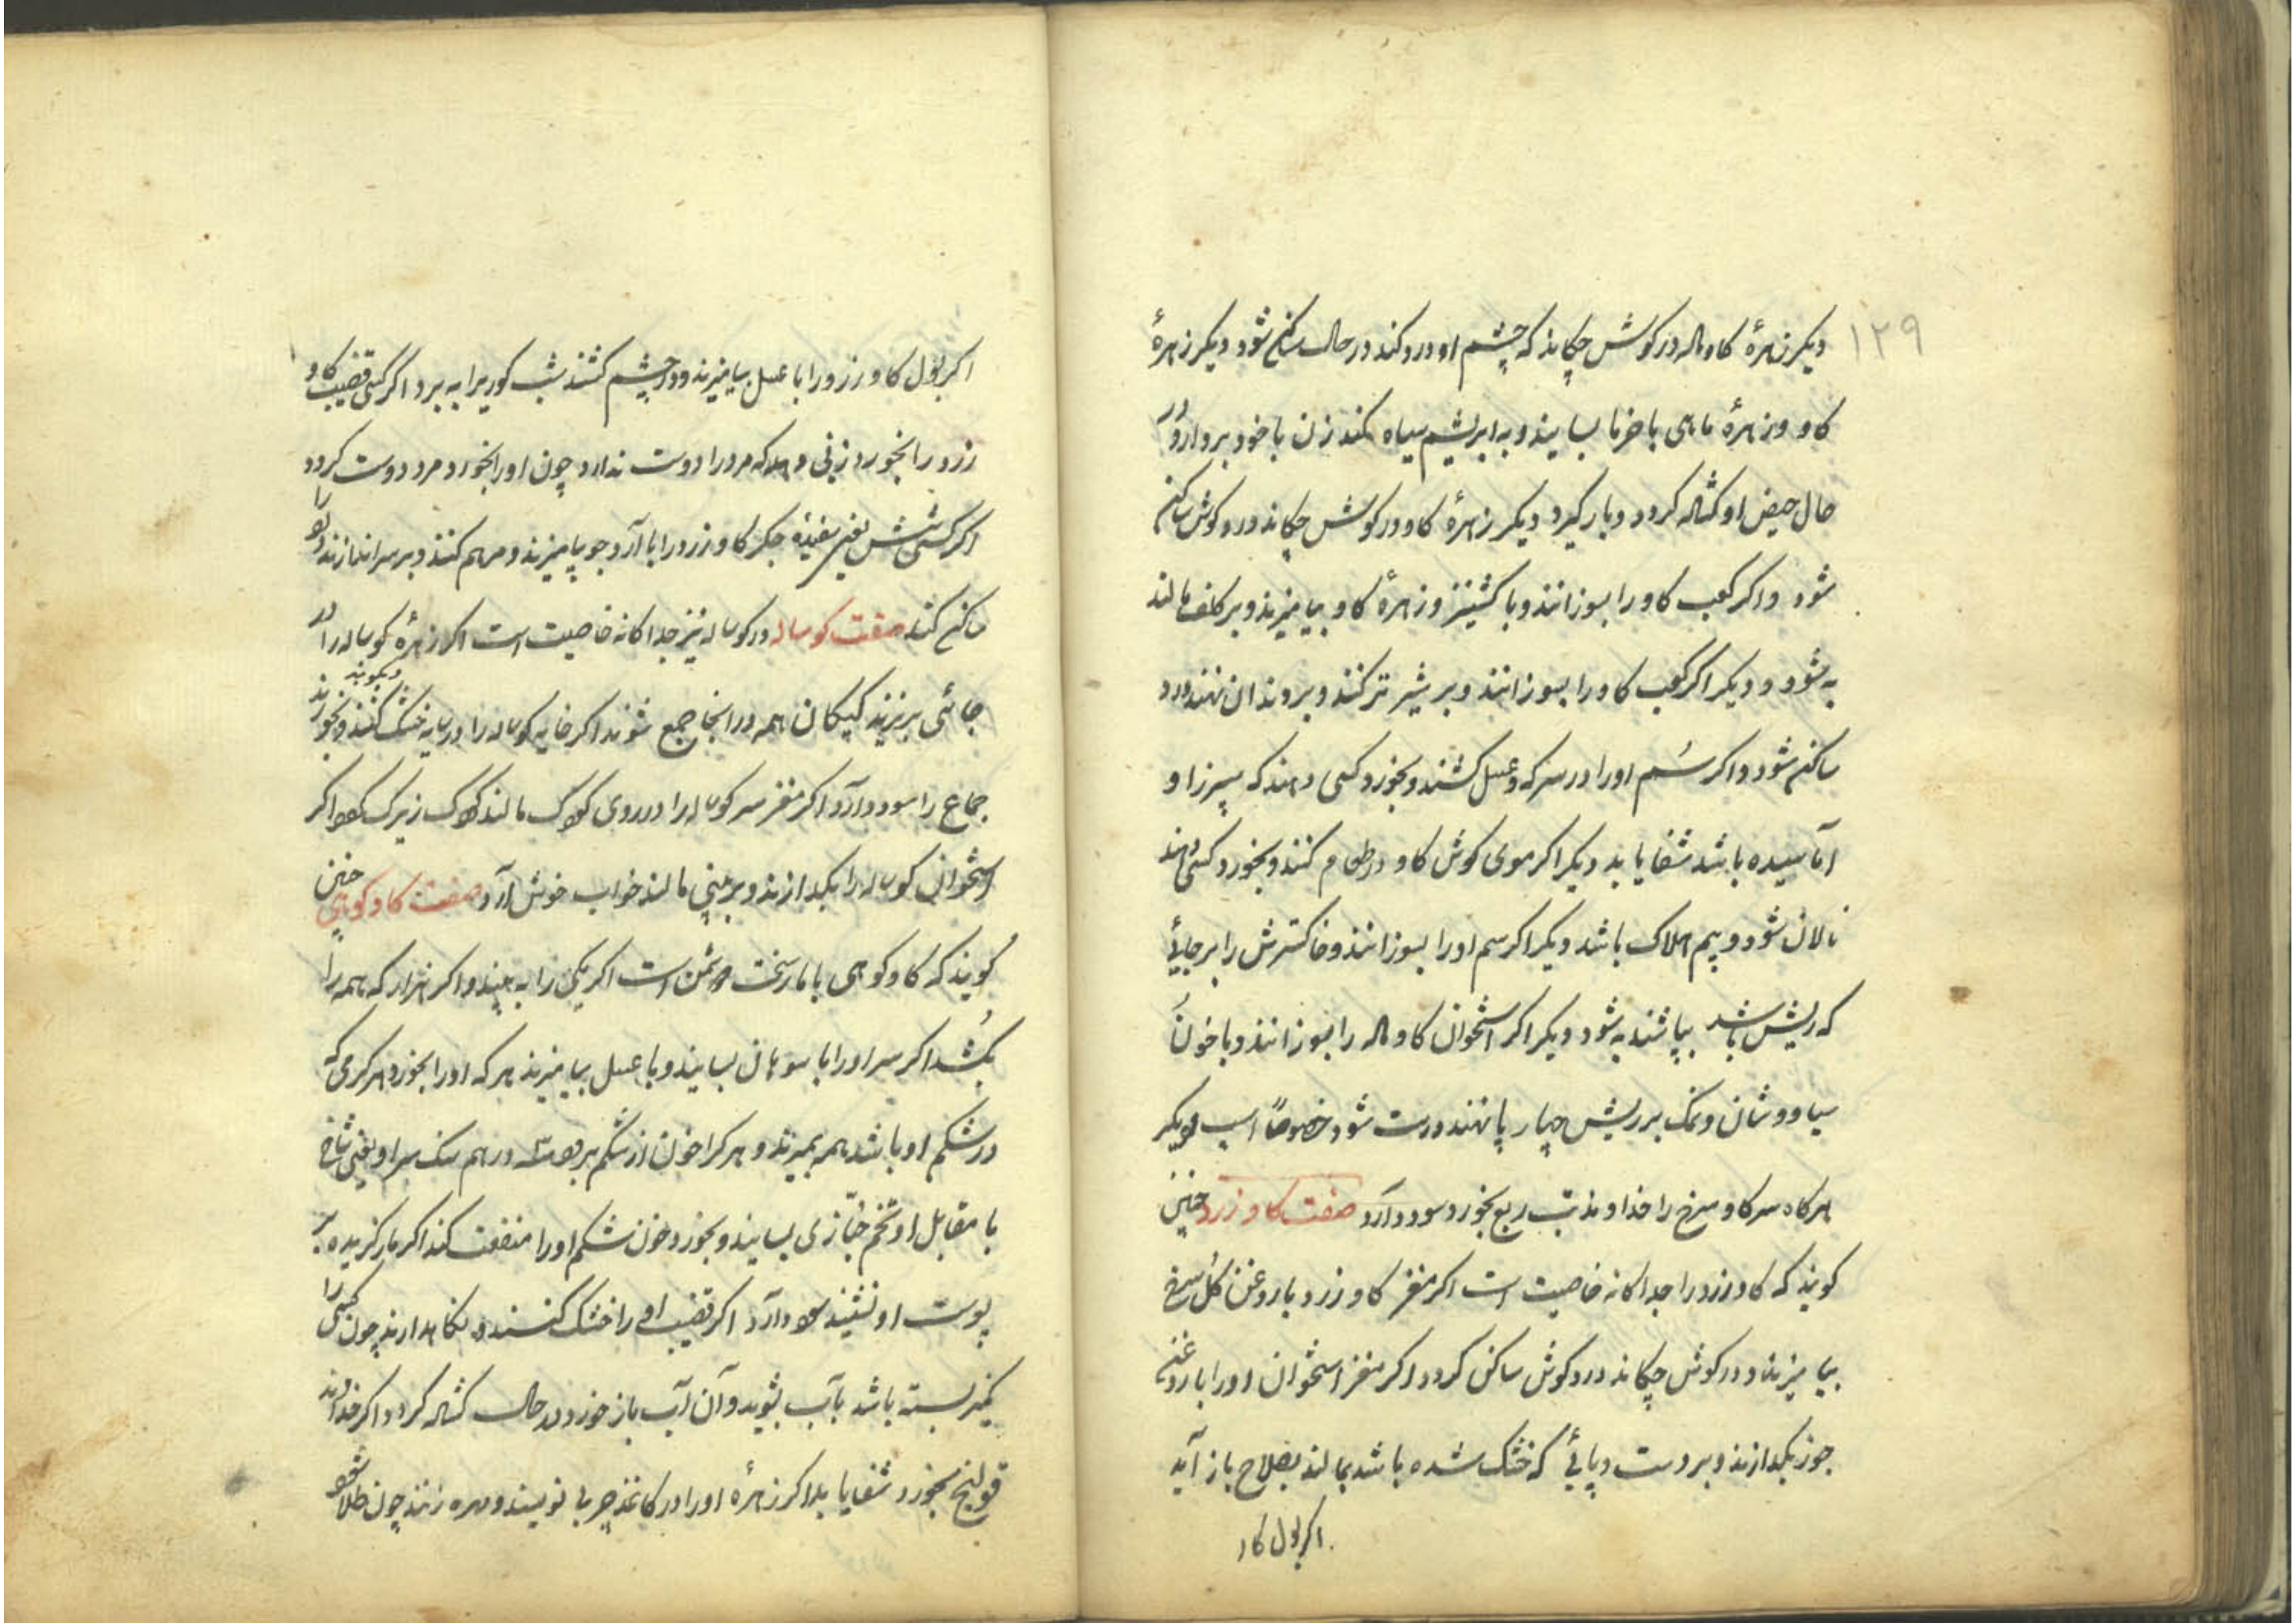 ۱۲۹
دیکر زهرهٔ کاو ماله در کوش چکانند که چشم او درد کند در حال ساکن شود دیکر زهرهٔ
کاو و زهرهٔ ماهی با خرما بسایند و به ابریشم سیاه کنند زن با خود بردارد در
حال حیض او کشاله کردد و بار کیرد دیکر زهرهٔ کاو در کوش چکانند درد کوش ساکن
شود و اکر کعب کاو را بسوزانند و با کشنیز و زهرهٔ کاو بیامیزند و بر کلف مالند
به شود و دیکر اکر کعب کاو را بسوزانند و بر شیر تر کنند و بر دندان نهند درد
ساکن شود و اکر سُم او را در سرکه و عسل کشند و بخورد کسی دهند که سپرز او
آماسیده باشد شفا یابد دیکر اکر موی کوش کاو در طعام کنند و بخورد کسی دهند
نالان شود و بیم هلاک باشد دیکر اکر سم او را بسوزانند و خاکسترش را بر جایٔی
که ریش باشد بپاشند به شود دیکر اکر استخوان کاو ماله را بسوزانند و با خون
سیاوشان و نمک بر ریش چهار پا نهند درست شود خصوصاً اسب دیکر
هرکاه سر کاو سرخ را خداوند تب ربع بخورد سود دارد صفت کاو زرد چنین
کویند که کاو زرد را جداکانه خاصیت است اکر مغز کاو زرد با روغن کل سرخ
بیامیزند و در کوش چکانند درد کوش ساکن کردد اکر مغز استخوان او را با روغن
جوز بکدازند و بر دست و پایٔی که خشک شده باشد بمالند بصلاح باز آید
اکر بول کاو
اکر بول کاو زرد را با عسل بیامیزند و در چشم کشند شب کوریرا به برد اکر کسی قضیب کاو
زرد را بخورد زنی دهد که مرد را دوست ندارد چون او را بخورد مرد دوست کردد
اکر کسی شش جکر کاو زرد را با آرد جو بیامیزند و مرهم کنند و بر سر اندازند
ساکن کند صفت کوساله در کوساله نیز جداکانه خاصیت است اکر زهرهٔ کوساله را در
جائی بریزند کیکان همه در آنجا جمع شوند اکر خایه کوساله را در سایه خشک کنند و بکوبند و بخورند
جماع را سود دارد اکر مغز سر کوساله را در روی کودک مالند کودک زیرک شود اکر
استخوان کوساله را بکدازند و بر بینی مالند خواب خوش آرد صفت کاو کوهی چنین
کویند که کاو کوهی با مار سخت دشمن است اکر یکی را به بیند و اکر هزار که همه را
بکُشد اکر سر او را با سوهان بسایند و با عسل بیامیزند هر که او را بخورد هر کرمی که
در شکم او باشد همه بمیرند و هر کرا خون از شکم درهم سنک سر او یعنی شاخ
با مقابل او تخم خبّازی بسایند و بخورد خون شکم او را منفعت کند اکر مار کزیده بر
پوست او نشیند سود دارد اکر قضیب او را خشک کنند و نکاهدارند چون کسی را
کمیز بسته باشد بآب بشوید و آن آب باز خورد در حال کشاله کردد و اکر خداوند
قولنج بخورد شفا یابد اکر زهرهٔ او را در کاغذ چربی نویسند و مهره زنند چون طلا شود